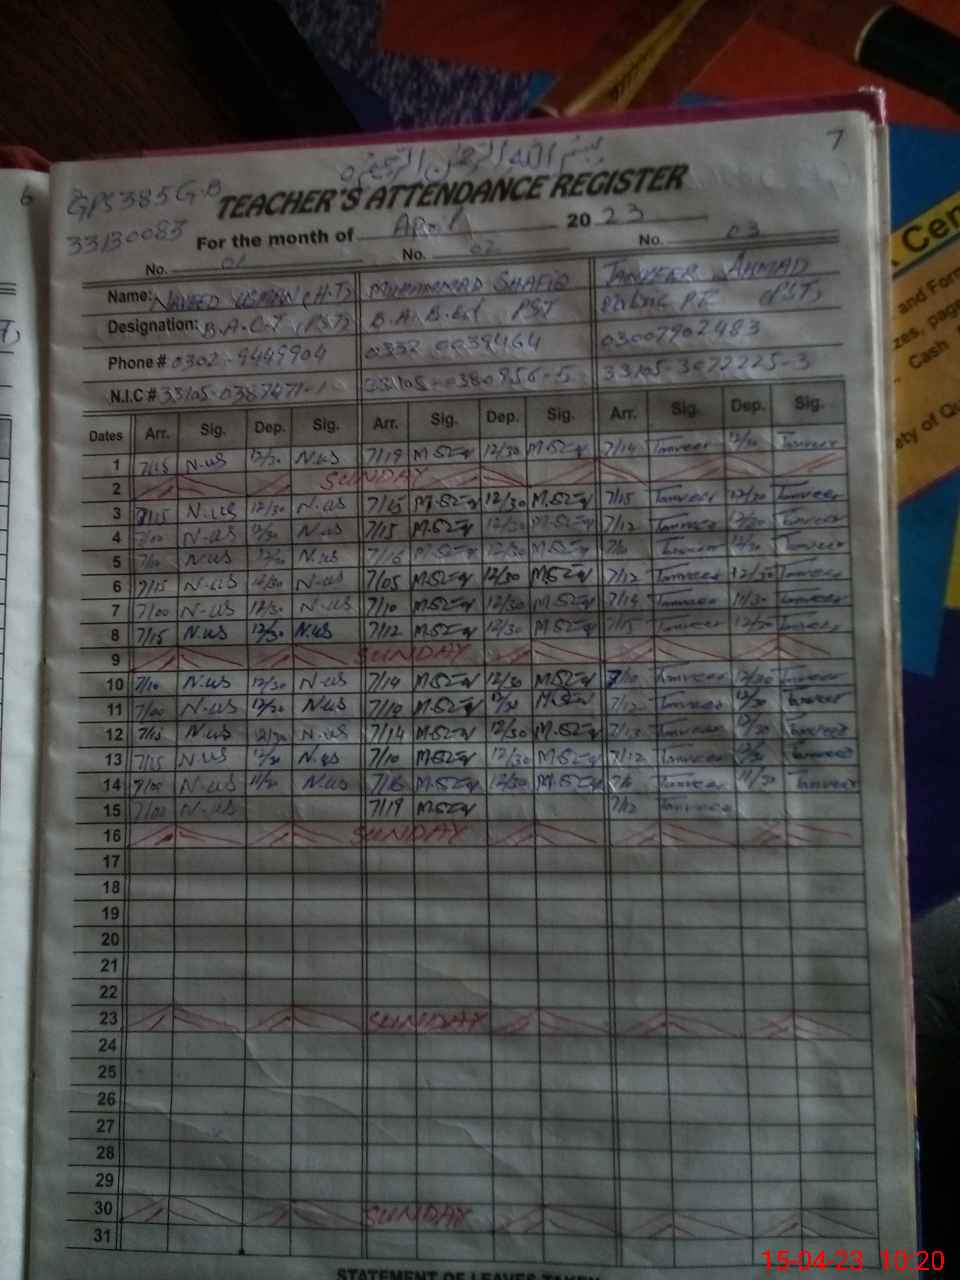 7
6
بسم الله الرحمن الرحيم
GPS 385 G.B
TEACHER'S ATTENDANCE REGISTER
33130083
For the month of April 2023
No. 01 No. 02 No. 03
Name: NAVEED USMAN (H.T) MUHAMMAD SHAFIQ TANVEER AHMAD
Designation: B.A.C.T (PST) B.A. B.Ed PST (PST)
Phone # 0302-9449904 0332 0039464 03007902483
N.I.C # 33105-0387471-1 33105-0380956-5 33105-3072225-3
Dates Arr. Sig. Dep. Sig. Arr. Sig. Dep. Sig. Arr. Sig. Dep. Sig.
1 7/15 N.US 12/30 N.US 7/19 12/30 7/14 Tanveer 12/30 Tanveer
2 SUNDAY
3 7/15 N.US 12/30 N.US 7/15 12/30 7/15 Tanveer 12/30 Tanveer
4 7/10 N.US 12/30 N.US 7/15 12/30 7/12 Tanveer 12/30 Tanveer
5 7/10 N.US 12/30 N.US 7/16 12/30 Tanveer 12/30 Tanveer
6 7/15 N.US 12/30 N.US 7/05 12/30 7/12 Tanveer 12/30 Tanveer
7 7/00 N.US 12/30 N.US 7/10 12/30 7/14 Tanveer 11/30 Tanveer
8 7/15 N.US 12/30 N.US 7/12 12/30 7/15 Tanveer 12/30 Tanveer
9 SUNDAY
10 7/10 N.US 12/30 N.US 7/14 12/30 7/10 Tanveer 12/30 Tanveer
11 7/00 N.US 12/30 N.US 12/30 7/12 Tanveer 12/30 Tanveer
12 7/15 N.US 12/30 N.US 7/14 12/30 7/13 Tanveer 12/30 Tanveer
13 7/15 N.US 12/30 N.US 7/10 12/30 7/12 Tanveer 12/30 Tanveer
14 7/00 N.US 11/30 N.US 7/16 12/30 Tanveer 11/30 Tanveer
15 7/00 N.US 7/19 7/12 Tanveer
16 SUNDAY
17
18
19
20
21
22
23 SUNDAY
24
25
26
27
28
29
30 SUNDAY
31
STATEMENT OF LEAVES TAKEN
Cen
and Form
zes, page
Cash
ety of Qu
15-04-23 10:20